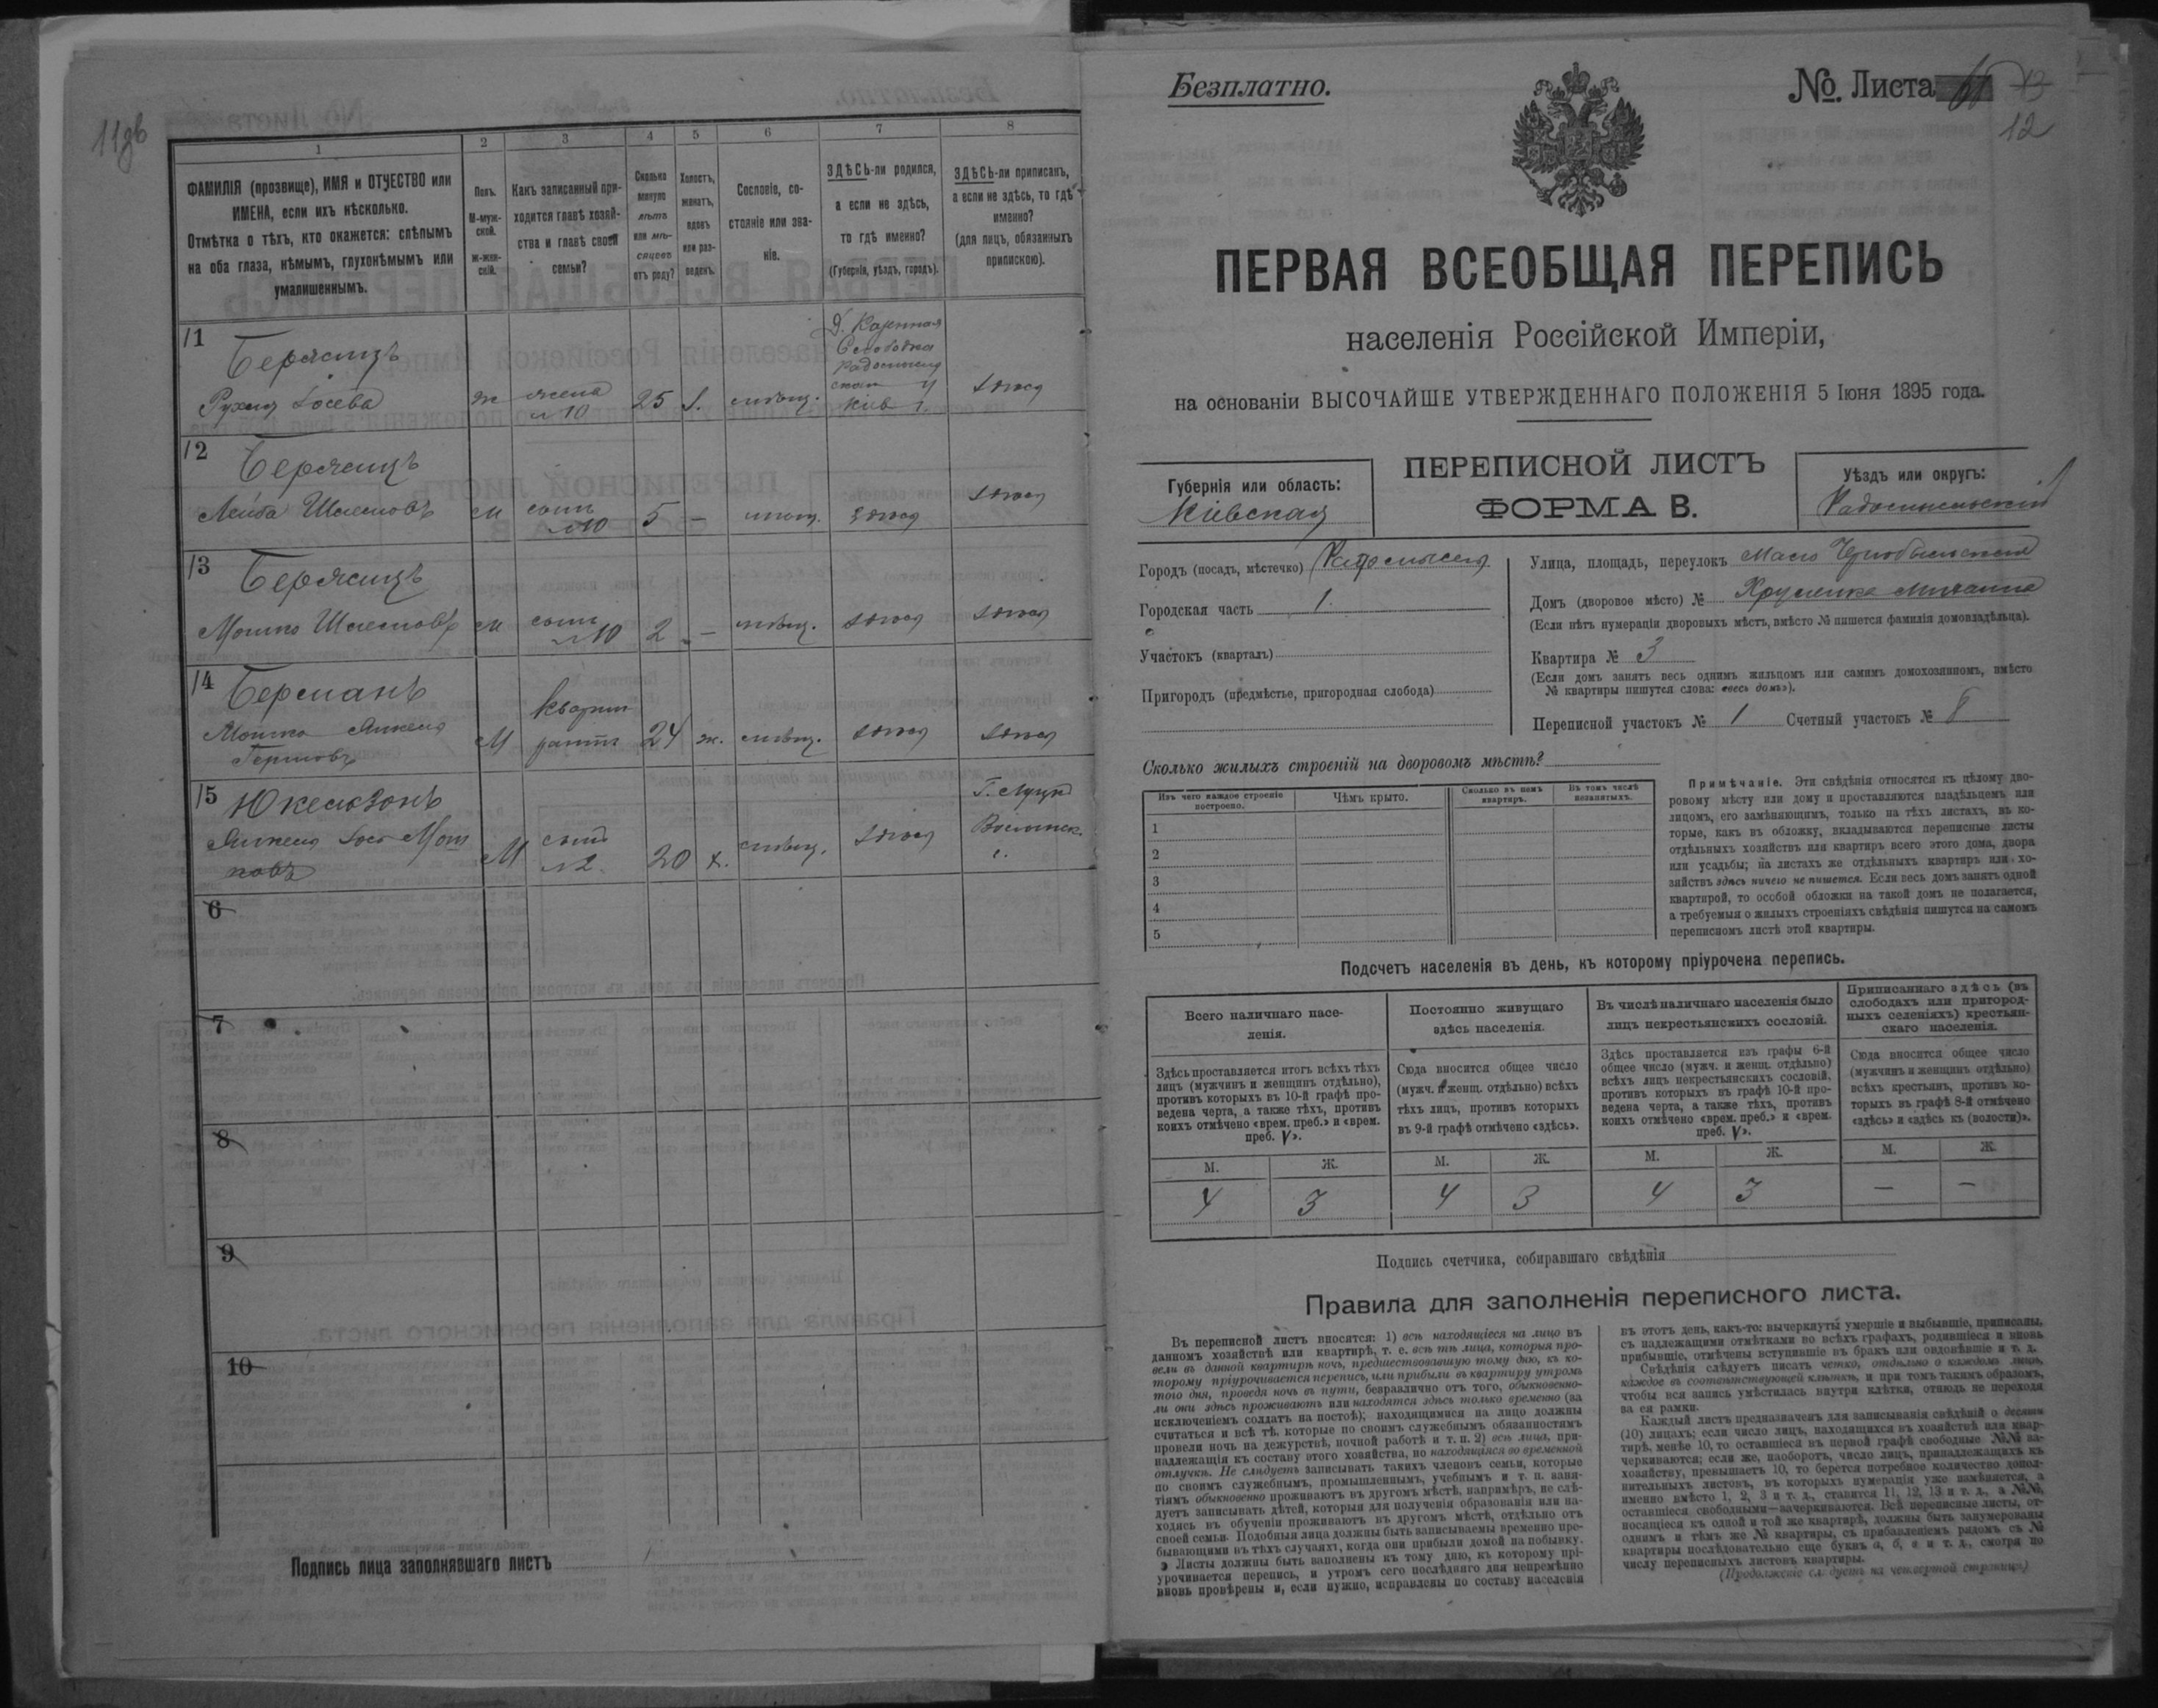 11об
1
2
3
4
5
6
7
8
ФАМИЛІЯ (прозвище), ИМЯ и ОТЧЕСТВО или
ИМЕНА, если ихъ нѣсколько.
Отмѣтка о тѣхъ, кто окажется: слѣпымъ
на оба глаза, нѣмымъ, глухонѣмымъ или
умалишеннымъ.
Полъ.
М-муж-
ской.
Ж-жен-
скій.
Какъ записанный при-
ходится главѣ хозяй-
ства и главѣ своей
семьи?
Сколько
минуло
лѣтъ
или мѣ-
сяцевъ
отъ роду?
Холостъ,
женатъ,
вдовъ
или раз-
веденъ.
Сословіе, со-
стояніе или зва-
ніе.
ЗДѢСЬ-ли родился,
а если не здѣсь,
то гдѣ именно?
(Губернія, уѣздъ, городъ).
ЗДѢСЬ-ли приписанъ,
а если не здѣсь, то гдѣ
именно?
(для лицъ, обязанныхъ
припискою).
11
Рухля Іосева
ж
жена
№ 10
25
мѣщ.
Слободка
Кіев. г.
здѣсь
12
Лейба
м
сынъ
№ 10
5
–
мѣщ.
здѣсь
здѣсь
13
Мошко
м
сынъ
№ 10
2
–
мѣщ.
здѣсь
здѣсь
14
Берманъ
Мошко
Гершовъ
М
кварти
рантъ
24
ж.
мѣщ.
здѣсь
здѣсь
15
М
сынъ
№ 2.
20
х.
мѣщ.
здѣсь
Г. Луцк
Волынск.
г.
6
7
8
9
10
Подпись лица заполнявшаго листъ
Безплатно.
№ Листа
13
12
ПЕРВАЯ ВСЕОБЩАЯ ПЕРЕПИСЬ
населенія Россійской Имперіи,
на основаніи ВЫСОЧАЙШЕ УТВЕРЖДЕННАГО ПОЛОЖЕНІЯ 5 Іюня 1895 года.
Губернія или область:
Кіевская
ПЕРЕПИСНОЙ ЛИСТЪ
ФОРМА В.
Уѣздъ или округъ:
Радомысльскій
Городъ (посадъ, мѣстечко) Радомысль
Городская часть 1.
Участокъ (кварталъ)
Пригородъ (предмѣстье, пригородная слобода)
Улица, площадь, переулокъ Мало Чернобыльская
Домъ (дворовое мѣсто) №
(Если нѣтъ нумераціи дворовыхъ мѣстъ, вмѣсто № пишется фамилія домовладѣльца).
Квартира № 3
(Если домъ занятъ весь однимъ жильцомъ или самимъ домохозяиномъ, вмѣсто
№ квартиры пишутся слова: «весь домъ»).
Переписной участокъ № 1 Счетный участокъ № 8
Сколько жилыхъ строеній на дворовомъ мѣстѣ?
Изъ чего каждое строеніе
построено.
Чѣмъ крыто.
Сколько въ немъ
квартиръ.
Въ томъ числѣ
незанятыхъ.
1
2
3
4
5
Примѣчаніе. Эти свѣдѣнія относятся къ цѣлому дво-
ровому мѣсту или дому и проставляются владѣльцемъ или
лицомъ, его замѣняющимъ, только на тѣхъ листахъ, въ ко-
торые, какъ въ обложку, вкладываются переписные листы
отдѣльныхъ хозяйствъ или квартиръ всего этого дома, двора
или усадьбы; на листахъ же отдѣльныхъ квартиръ или хо-
зяйствъ здѣсь ничего не пишется. Если весь домъ занятъ одной
квартирой, то особой обложки на такой домъ не полагается,
а требуемыя о жилыхъ строеніяхъ свѣдѣнія пишутся на самомъ
переписномъ листѣ этой квартиры.
Подсчетъ населенія въ день, къ которому пріурочена перепись.
Всего наличнаго насе-
ленія.
Здѣсь проставляется итогъ всѣхъ тѣхъ
лицъ (мужчинъ и женщинъ отдѣльно),
противъ которыхъ въ 10-й графѣ про-
ведена черта, а также тѣхъ, противъ
коихъ отмѣчено «врем. преб.» и «врем.
преб. V».
Постоянно живущаго
здѣсь населенія.
Сюда вносится общее число
(мужч. и женщ. отдѣльно) всѣхъ
тѣхъ лицъ, противъ которыхъ
въ 9-й графѣ отмѣчено «здѣсь».
Въ числѣ наличнаго населенія было
лицъ некрестьянскихъ сословій.
Здѣсь проставляется изъ графы 6-й
общее число (мужч. и женщ. отдѣльно)
всѣхъ лицъ некрестьянскихъ сословій,
противъ которыхъ въ графѣ 10-й про-
ведена черта, а также тѣхъ, противъ
коихъ отмѣчено «врем. преб.» и «врем.
преб. V».
Приписаннаго здѣсь (въ
слободахъ или пригород-
ныхъ селеніяхъ) крестьян-
скаго населенія.
Сюда вносится общее число
(мужчинъ и женщинъ отдѣльно)
всѣхъ крестьянъ, противъ ко-
торыхъ въ графѣ 8-й отмѣчено
«здѣсь» и «здѣсь къ (волости)».
М. Ж. М. Ж. М. Ж. М. Ж.
4 3 4 3 4 3 – –
Подпись счетчика, собиравшаго свѣдѣнія
Правила для заполненія переписного листа.
Въ переписной листъ вносятся: 1) всѣ находящіеся на лицо въ
данномъ хозяйствѣ или квартирѣ, т. е. всѣ тѣ лица, которыя про-
вели въ данной квартирѣ ночь, предшествовавшую тому дню, къ ко-
торому пріурочивается перепись, или прибыли въ квартиру утромъ
того дня, проведя ночь въ пути, безразлично отъ того, обыкновенно-
ли они здѣсь проживаютъ или находятся здѣсь только временно (за
исключеніемъ солдатъ на постоѣ); находящимися на лицо должны
считаться и всѣ тѣ, которые по своимъ служебнымъ обязанностямъ
провели ночь на дежурствѣ, ночной работѣ и т. п. 2) всѣ лица, при-
надлежащія къ составу этого хозяйства, но находящіяся во временной
отлучкѣ. Не слѣдуетъ записывать такихъ членовъ семьи, которые
по своимъ служебнымъ, промышленнымъ, учебнымъ и т. п. заня-
тіямъ обыкновенно проживаютъ въ другомъ мѣстѣ, напримѣръ, не слѣ-
дуетъ записывать дѣтей, которыя для полученія образованія или на-
ходясь въ обученіи проживаютъ въ другомъ мѣстѣ, отдѣльно отъ
своей семьи. Подобныя лица должны быть записываемы временно пре-
бывающими въ тѣхъ случаяхъ, когда они прибыли домой на побывку.
Листы должны быть заполнены къ тому дню, къ которому прі-
урочивается перепись, и утромъ сего послѣдняго дня непремѣнно
вновь провѣрены и, если нужно, исправлены по составу населенія
въ этотъ день, какъ-то: вычеркнуты умершіе и выбывшіе, приписаны,
съ надлежащими отмѣтками во всѣхъ графахъ, родившіеся и вновь
прибывшіе, отмѣчены вступившіе въ бракъ или овдовѣвшіе и т. д.
Свѣдѣнія слѣдуетъ писать четко, отдѣльно о каждомъ лицѣ,
каждое въ соотвѣтствующей клѣткѣ, и при томъ такимъ образомъ,
чтобы вся запись умѣстилась внутри клѣтки, отнюдь не переходя
за ея рамки.
Каждый листъ предназначенъ для записыванія свѣдѣній о десяти
(10) лицахъ; если число лицъ, находящихся въ хозяйствѣ или квар-
тирѣ, менѣе 10, то оставшіеся въ первой графѣ свободные №№ за-
черкиваются; если же, наоборотъ, число лицъ, принадлежащихъ къ
хозяйству, превышаетъ 10, то берется потребное количество допол-
нительныхъ листовъ, въ которыхъ нумерація уже измѣняется, а
именно вмѣсто 1, 2, 3 и т. д., ставится 11, 12, 13 и т. д., а №№,
оставшіеся свободными—зачеркиваются. Всѣ переписные листы, от-
носящіеся къ одной и той же квартирѣ, должны быть занумерованы
однимъ и тѣмъ же № квартиры, съ прибавленіемъ рядомъ съ №
квартиры послѣдовательно еще буквъ а, б, в и т. д., смотря по
числу переписныхъ листовъ квартиры.
(Продолженіе слѣдуетъ на четвертой страницѣ)